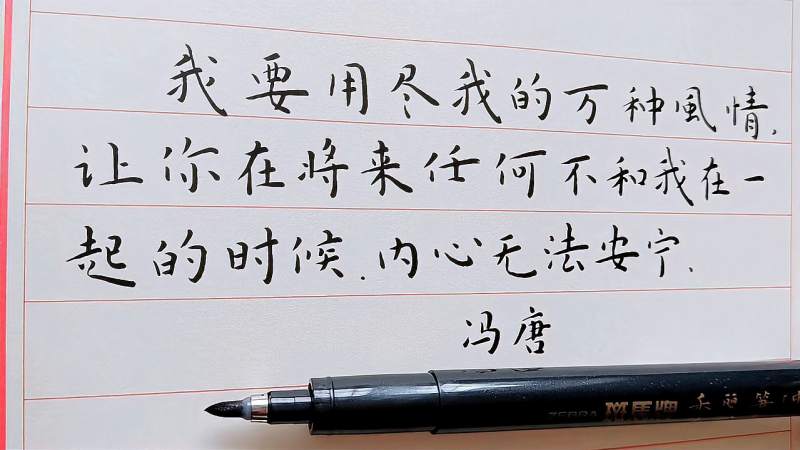 我要用尽我的万种風情，
让你在将来任何不和我在一
起的时候，内心无法安宁。
冯唐
ZEBRA 斑马牌 秀丽笔